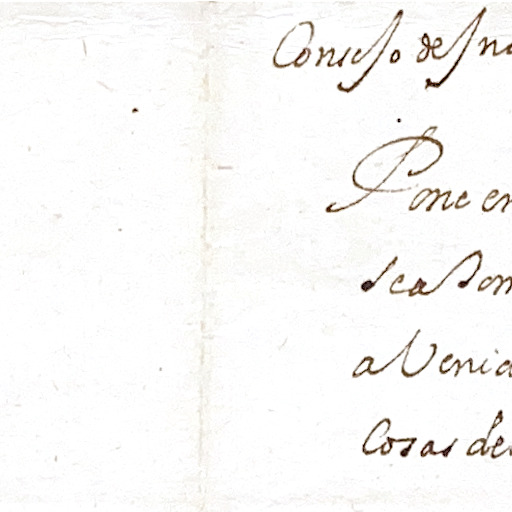 Consejo de In
Pone en
sea Don
a Venid
Cosas de